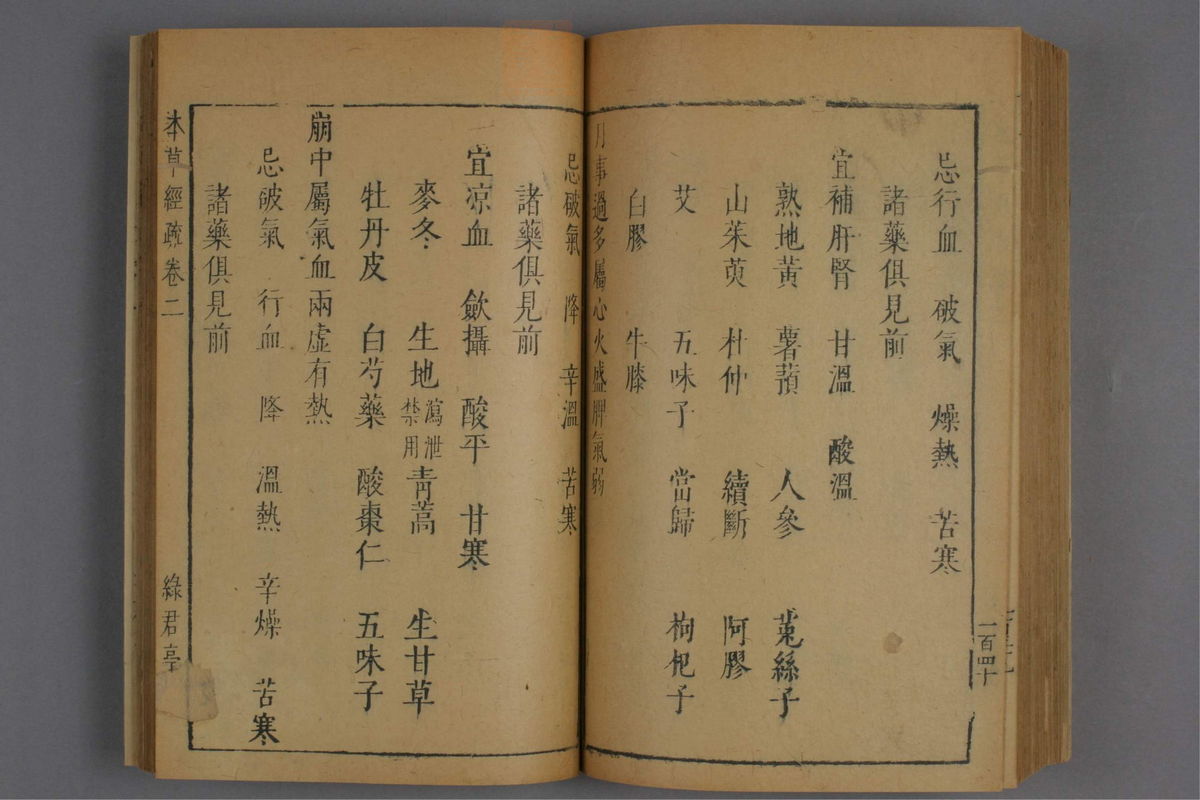 忌行血 破氣 燥熱 苦寒
諸藥俱見前
宜補肝腎 甘溫 酸溫
熟地黃 薯蕷 人參 菟絲子
山茱萸 杜仲 續斷 阿膠
艾 五味子 當歸 枸杞子
白膠 牛膝
月事過多屬心火盛脾氣弱
忌破氣 降 辛溫 苦寒
諸藥俱見前
宜凉血 歛攝 酸平 甘寒
麥冬 生地瀉泄禁用 青蒿 生甘草
牡丹皮 白芍藥 酸棗仁 五味子
崩中屬氣血兩虛有熱
忌破氣 行血 降 溫熱 辛燥 苦寒
諸藥俱見前
本草經疏卷二 綠君亭
一百四十